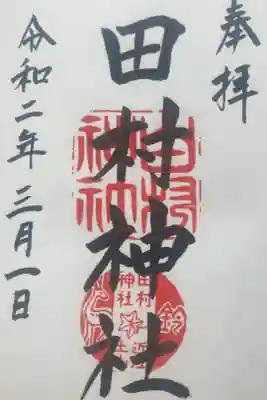 奉拝
田村神社
令和二年三月一日
田村
神社
田村
神社
鈴